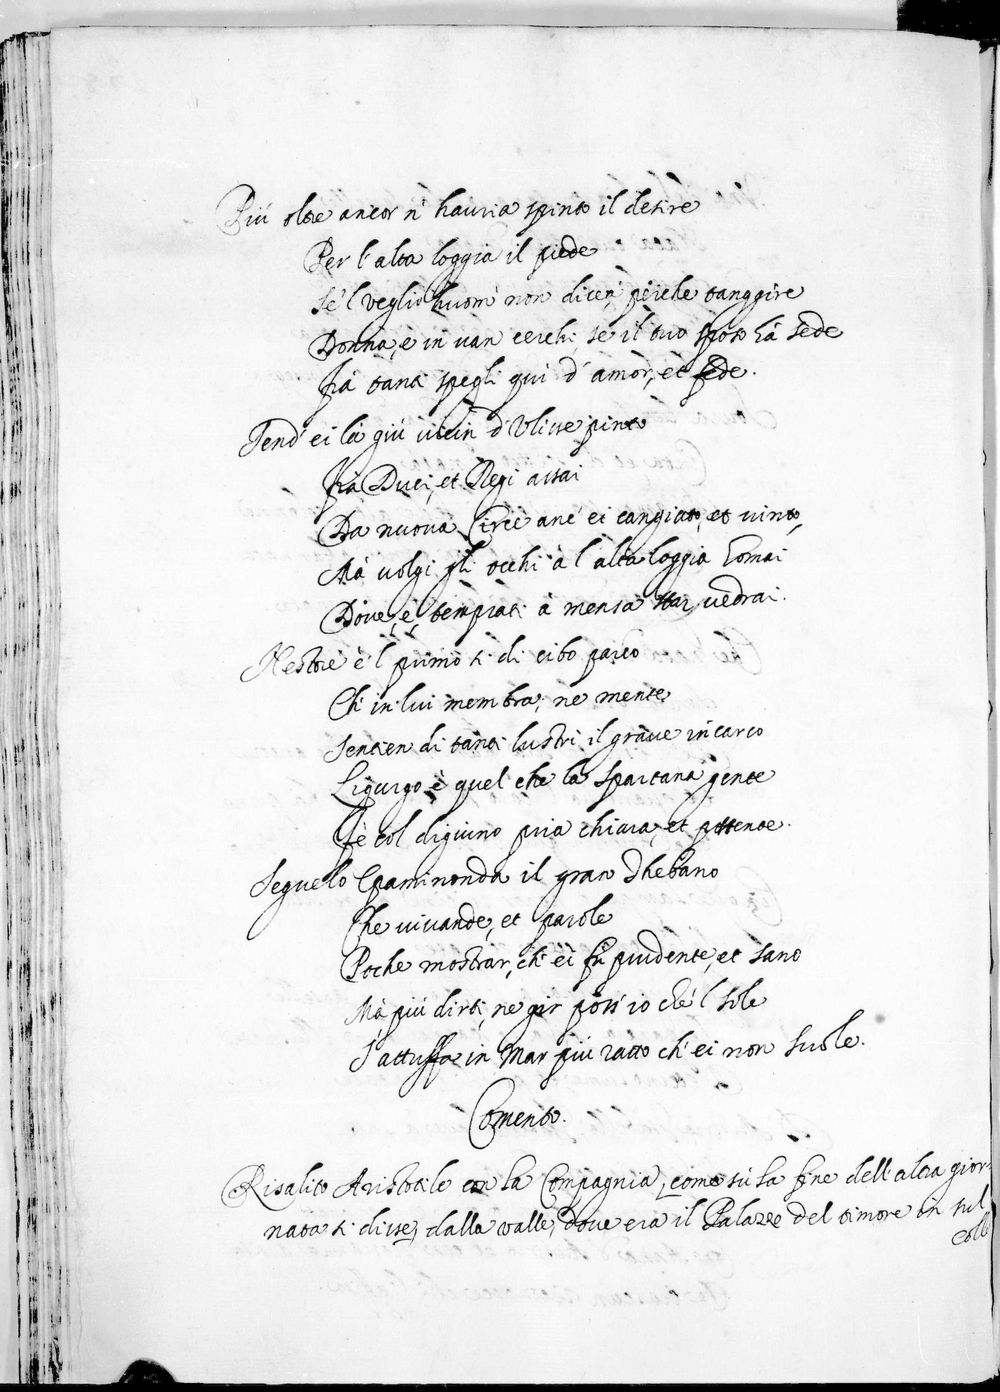 Più oltre ancor n' hauria spinto il desire
Per l'alta loggia il piede
Se'l veglio huom' non dicea, perche t'aggire
Donna, e in uan cerchi, se il tuo sposo hà sede
Frà tanti spegli qui d'amor, et fede.
Tend' ei là giù uicin d'Ulisse pinto
Frà Duci, et Regi assai
Da nuoua Circe anc' ei cangiato, et uinto,
Mà volgi gli occhi à l'alta loggia homai
Doue, e, temprati à mensa star, uedrai.
Nestore è'l primo sì di cibo parco
Ch' in lui membra, ne mente
Sentien di tanti lustri il graue incarco
Ligurgo è quel che la Spartana gente
Fè col digiuno pria chiara, et possente.
Seguelo Epaminonda il gran Thebano
Che uiuande, et parole
Poche mostrar, ch' ei fù prudente, et sano
Mà più dirti, ne gir poss' io che'l sole
S'attuffa in Mar più ratto ch' ei non suole.
Comento.
Risalito Aristotile con la Compagnia, come sù la fine dell'altra gior-
nata si disse, dalla valle, doue era il Palazzo del timore in sul
colle